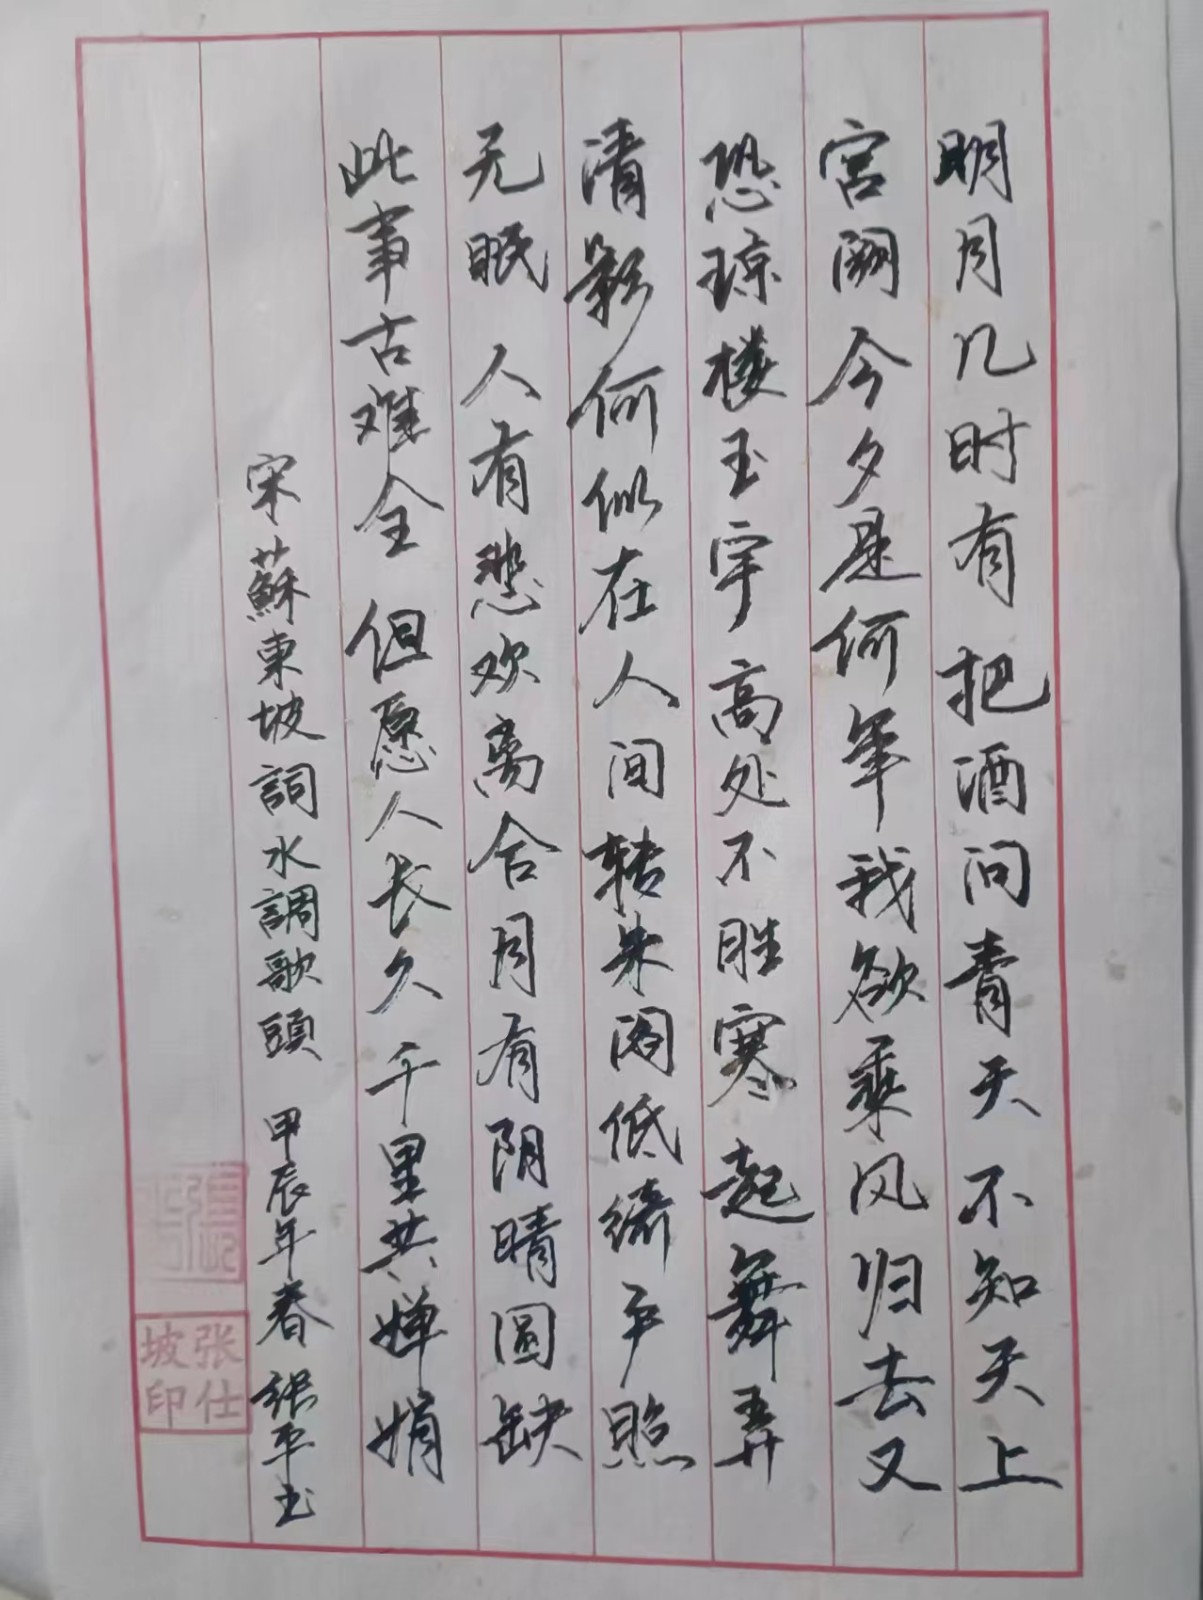 明月几时有把酒问青天不知天上
宫阙今夕是何年我欲乘风归去又
恐琼楼玉宇高处不胜寒起舞弄
清影何似在人间转朱阁低绮户照
无眠人有悲欢离合月有阴晴圆缺
此事古难全但愿人长久千里共婵娟
宋蘇東坡詞水調歌頭 甲辰年春 张平书
张仕
坡印